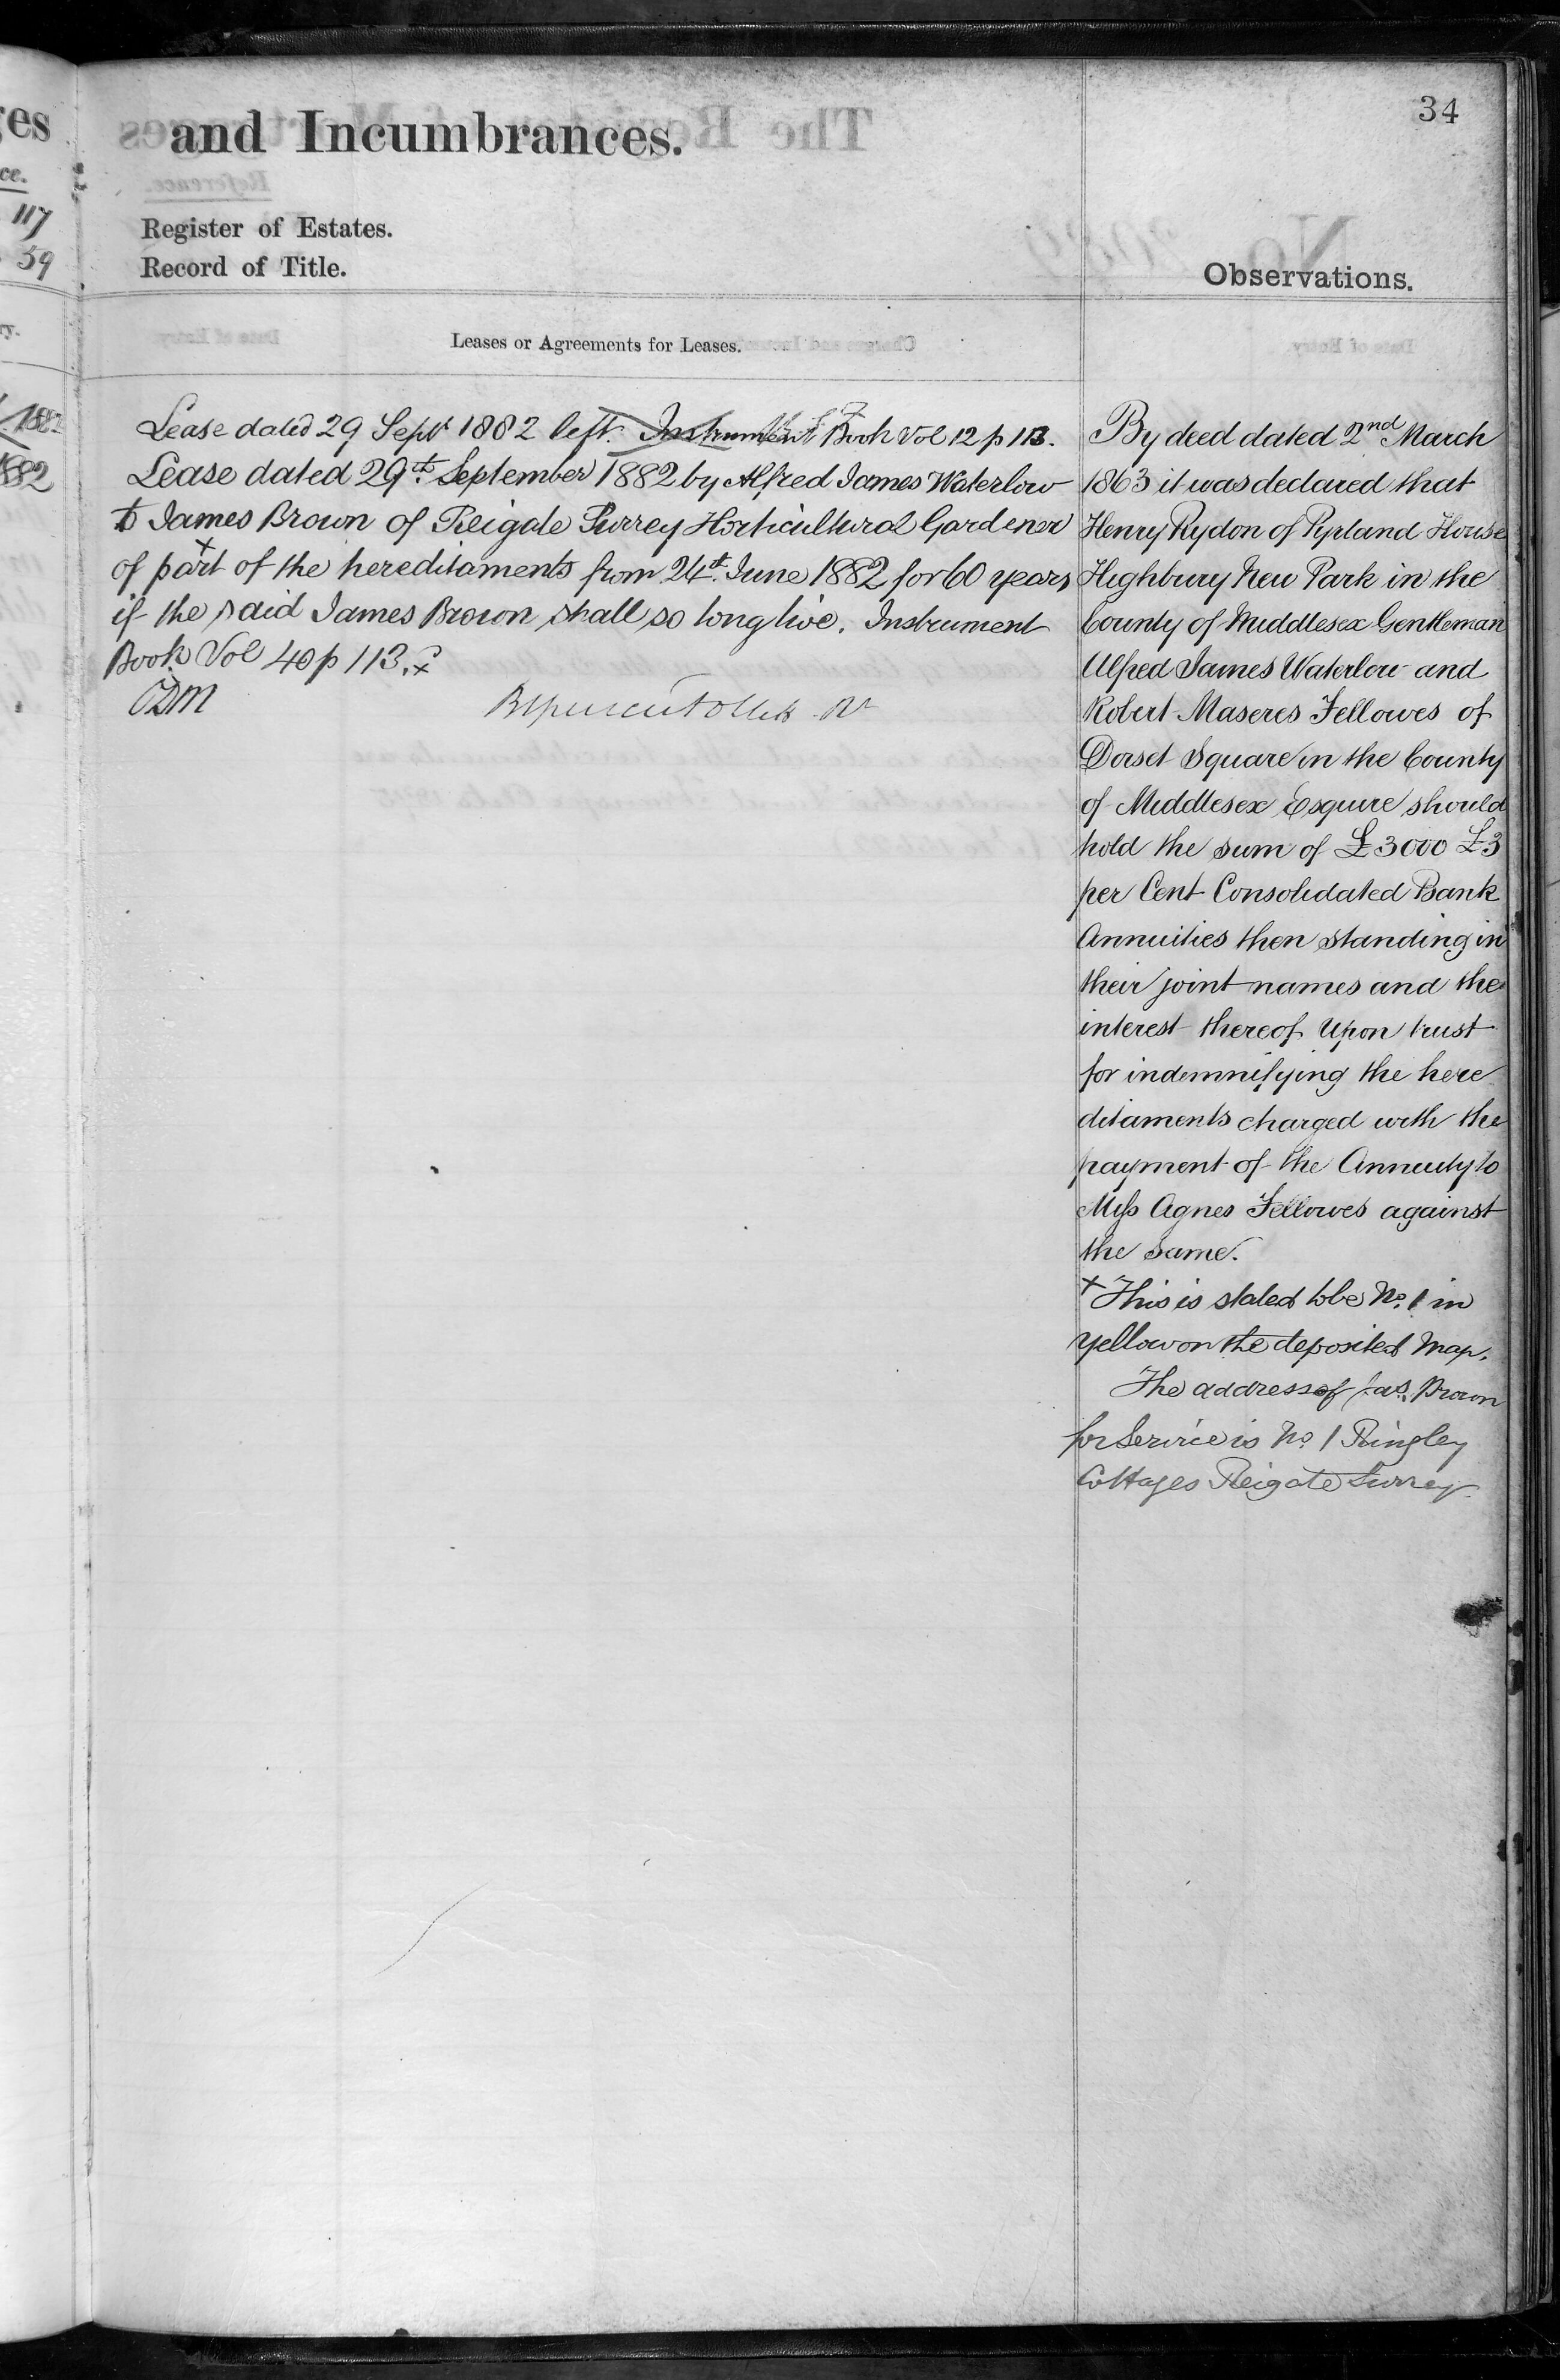 34
and Incumbrances.
Register of Estates.
Record of Title.
Leases or Agreements for Leases.
Lease dated 29 Sept 1882 left. Instrument Book Vol 12 p 113.
Lease dated 29th September 1882 by Alfred James Waterlow
to James Brown of Reigate Surrey Horticultural Gardener
of part x of the hereditaments from 24th June 1882 for 60 years
if the said James Brown shall so long live. Instrument
Book Vol 40 p 113.
Observations.
By deed dated 2nd March
1863 it was declared that
Henry Rydon of Pyrland House
Highbury New Park in the
County of Middlesex Gentleman
Alfred James Waterlow and
Robert Maseres Fellowes of
Dorset Square in the County
of Middlesex Esquire should
hold the sum of £3000 £3
per Cent Consolidated Bank
Annuities then standing in
their joint names and the
interest thereof Upon trust
for indemnifying the here
ditaments charged with the
payment of the Annuity to
Miss Agnes Fellowes against
the same.
x This is stated to be No. 1 in
yellow on the deposited Map.
The address of Jas. Brown
for Service is No 1 Ringley
Cottages Reigate Surrey
ges
ce.
117
59
ry.
1882
1882